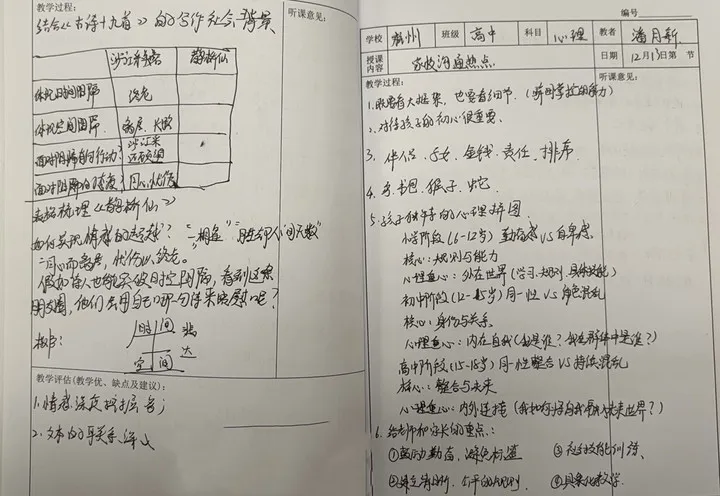 教学过程:
听课意见:
结合《古诗十九首》的写作社会背景
涉江采芙蓉
鹊桥仙
体现时间阻隔
终老
体现空间阻隔
离居、长路
面对阻隔有何行动?
涉江采
还顾望
面对阻隔的态度?
同心、忧伤
表格梳理《鹊桥仙》
如何实现情感的超越? “一相逢”“胜却人间无数”
“同心而离居,忧伤以终老。
假如诗人也能突破时空阻隔,看到这条
朋友圈,他们会用自己哪句诗来
板书:
时间
空间
教学评估(教学优、缺点及建议):
1.情感深度
2.文本的
编号
学校
班级 高中
科目 心理
教者 潘月新
授课内容
家校沟通热点
日期 12月13日第 节
教学过程:
听课意见:
1.既要有大框架,也要看细节.
2.对待孩子的初心很重要.
3.伴侣.子女.金钱.责任.排序
4.书包.猴子.蛇.
5.孩子
的心理拼图
小学阶段(6-12岁) 勤奋感 VS 自卑感
核心:规则与能力
心理重心:外在世界(学习.规则.具体技能)
初中阶段(12-15岁) 同一性 VS 角色混乱
核心:身份与关系.
心理重心:内在自我(我是谁?我在群体中是谁?)
高中阶段(15-18岁) 同一性整合 VS 持续混乱
核心:整合与未来
心理重心:内外连接(我如何带着自我
未来世界?)
6.给老师和家长的重点:
①鼓励勤奋,避免标签
③社交技能训练、
②建立清晰、公平的规则.
④具象化教学.